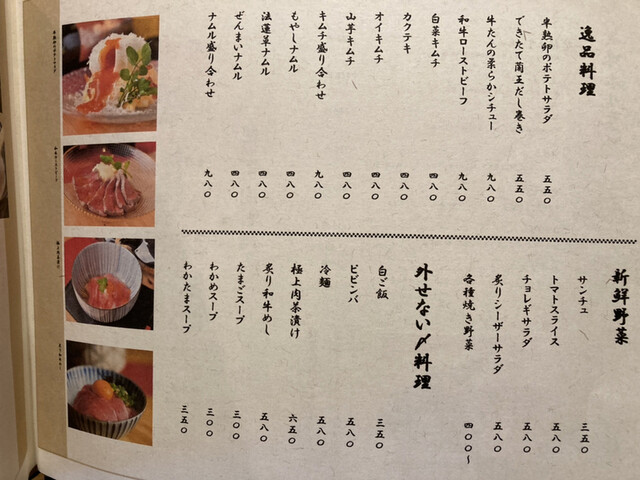 逸品料理
半熟卵のポテトサラダ 五五〇
できたて蘭王だし巻き 五五〇
牛たんの柔らかシチュー 九八〇
和牛ローストビーフ 九八〇
白菜キムチ 四八〇
カクテキ 四八〇
オイキムチ 四八〇
山芋キムチ 四八〇
キムチ盛り合わせ 九八〇
もやしナムル 四八〇
法蓮草ナムル 四八〇
ぜんまいナムル 四八〇
ナムル盛り合わせ 九八〇
新鮮野菜
サンチュ 三五〇
トマトスライス 五八〇
チョレギサラダ 五八〇
炙りシーザーサラダ 五八〇
各種焼き野菜 四〇〇〜
外せない〆料理
白ご飯 三五〇
ビビンバ 五八〇
冷麺 五八〇
極上肉茶漬け 六五〇
炙り和牛めし 五八〇
たまごスープ 三〇〇
わかめスープ 三〇〇
わかたまスープ 三五〇